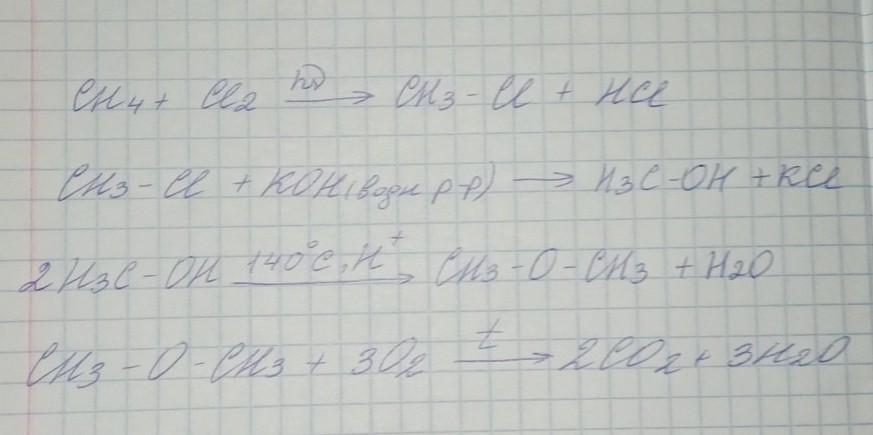 CH4 + Cl2 hν → CH3 - Cl + HCl
CH3 - Cl + KOH(водн р-р) → H3C-OH + KCl
2H3C - OH 140°C, H+ → CH3 - O - CH3 + H2O
CH3 - O - CH3 + 3O2 t → 2CO2 + 3H2O